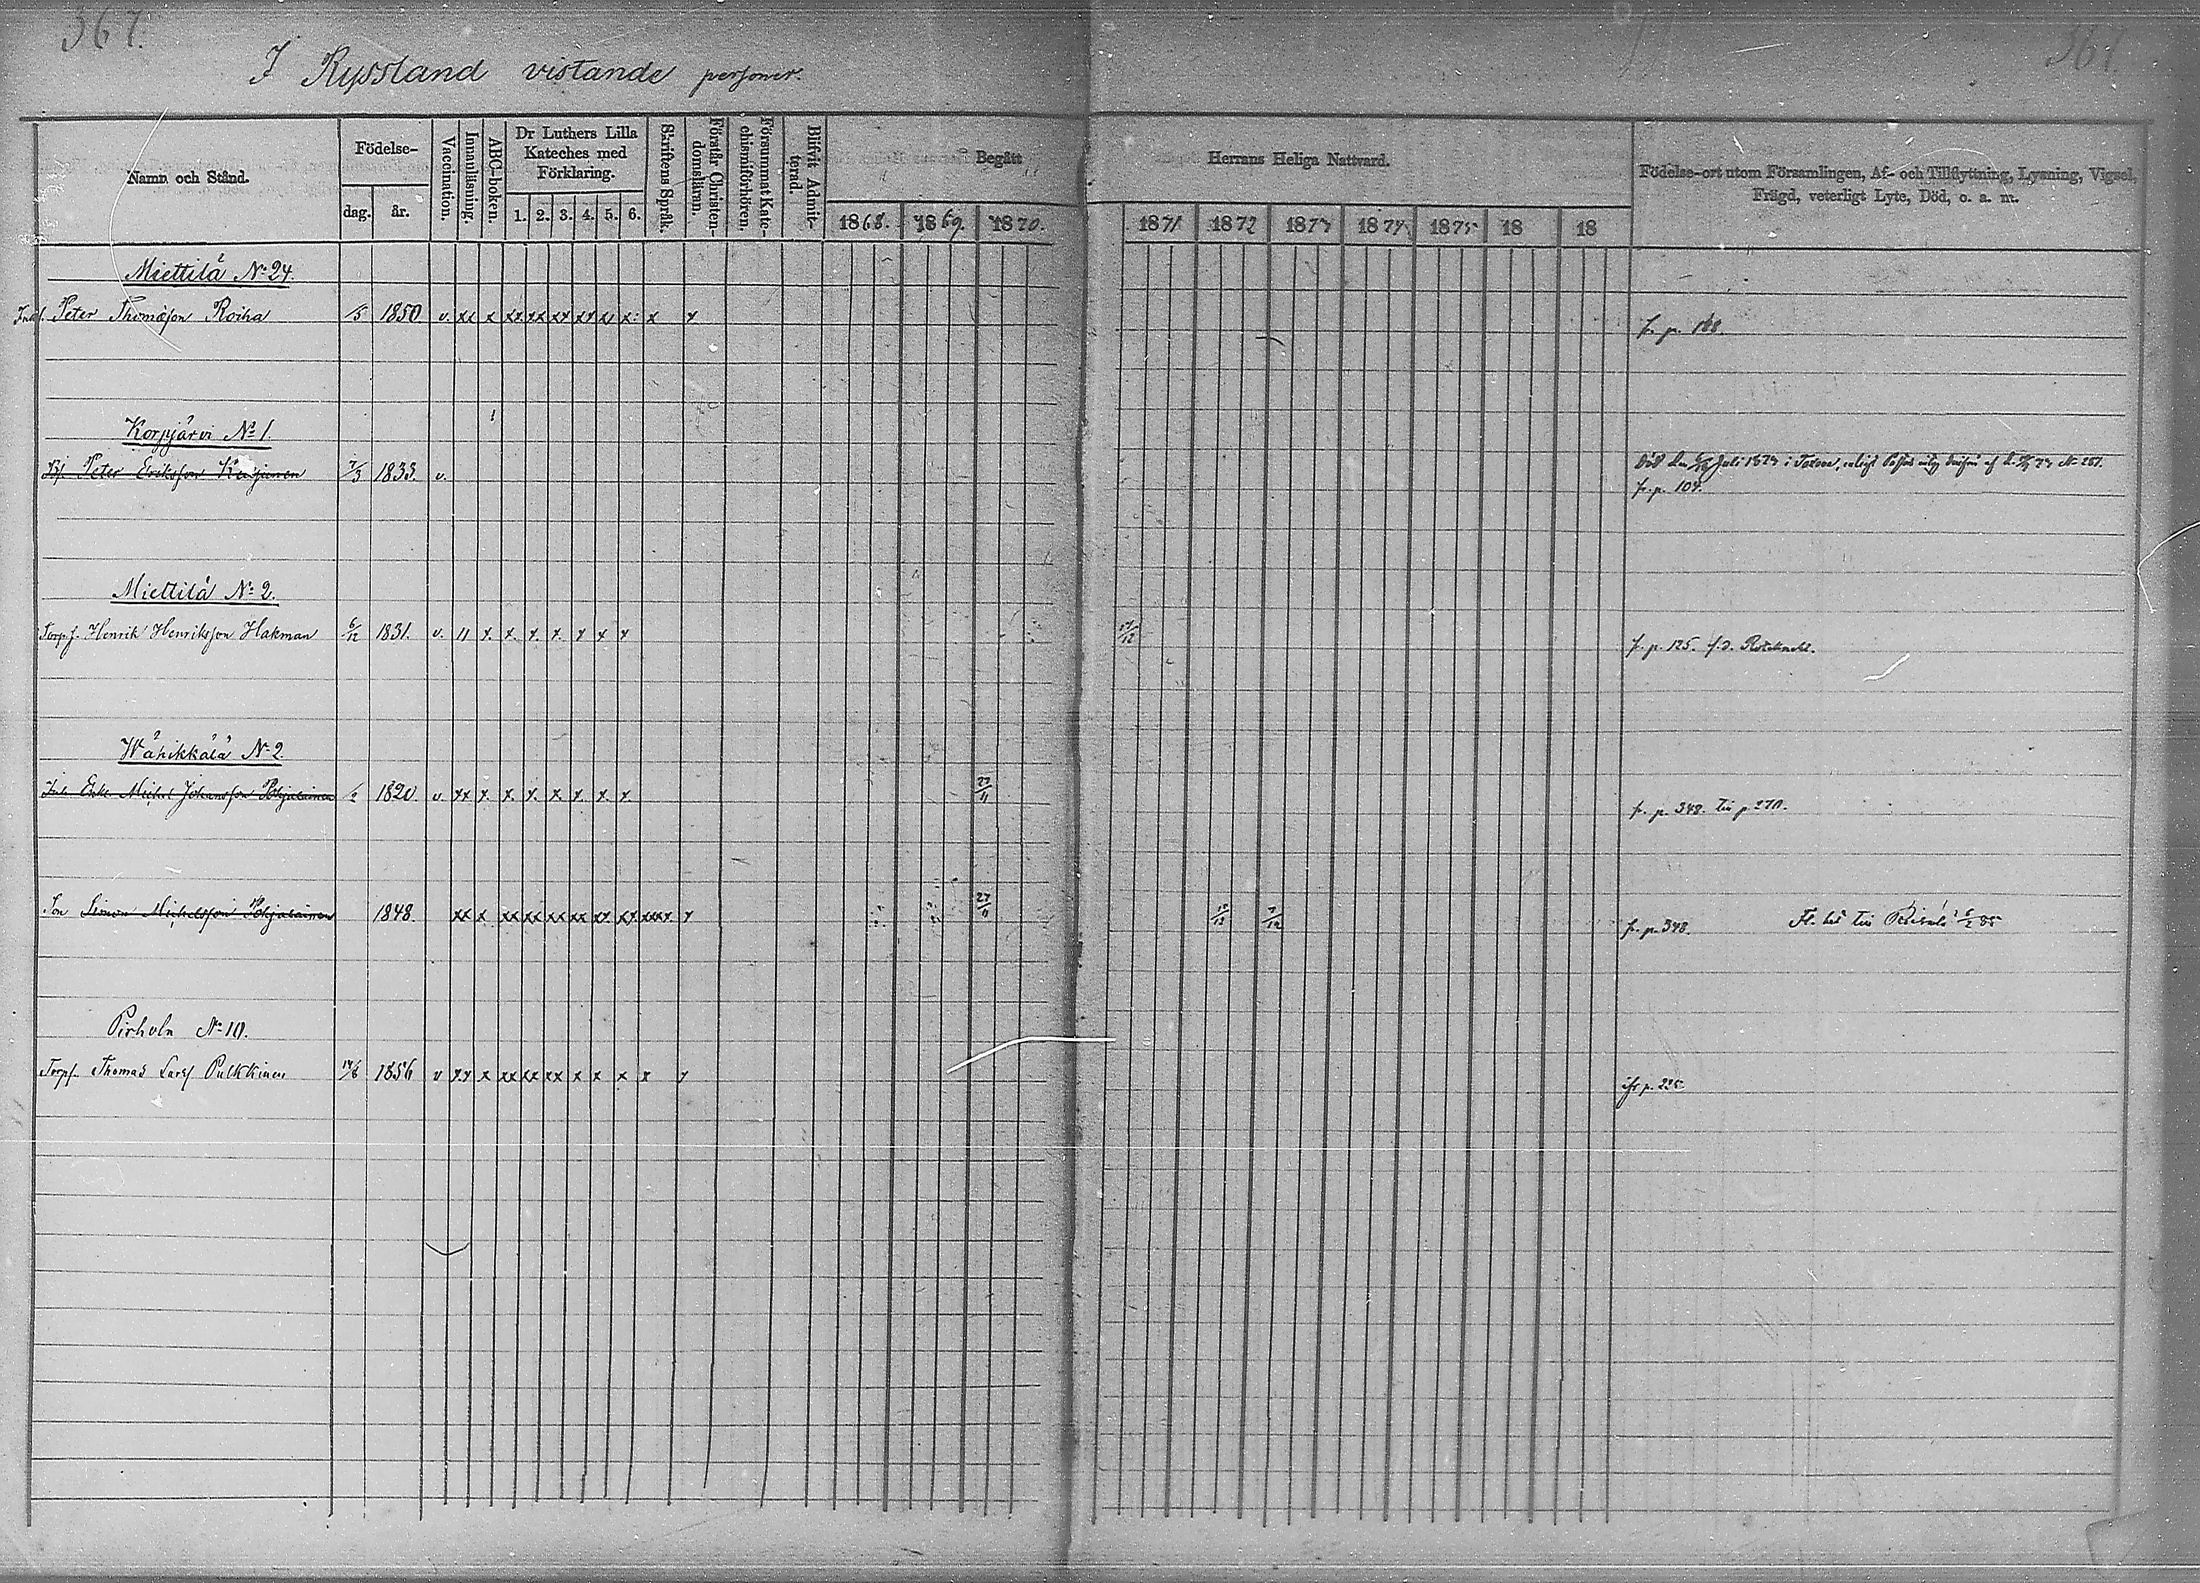 367.
367.
I Ryssland vistande personer.
Namn och Stånd.
Födelse-
dag.
år.
Vaccination.
Innanläsning.
ABC-boken.
Dr Luthers Lilla
Kateches med
Förklaring.
1. 2. 3. 4. 5. 6.
Skriftens Språk.
Förstår Christen-
domsläran.
Försummat Kate-
chismiförhören.
Blifvit Admit-
terad.
Begått
Herrans Heliga Nattvard.
1868. 1869. 1870.
1871 1872 1873 1874 1875 18 18
Födelse-ort utom Församlingen, Af- och Tillflyttning, Lysning, Vigsel,
Frägd, veterligt Lyte, Död, o. a. m.
Miettilä No 24.
Peter Thomasson Roiha /5 1850 v. xx x xx xx xx xx x x x x fr. p. 188.
Korpjärvi No 1.
Peter Eriksson 7/3 1833. v.
Död den Juli 1873 i
fr. p. 104.
Miettilä No 2.
Torp.s. Henrik Henriksson Hakman 6/12 1831. v. 11 x. x. x. x. x x x /12 fr. p. 125.
Wähikkälä No 2
Enkl. Michel Johansson Pohjalainen 1820. v. xx x. x. x. x. x. x. x. 27/11 fr. p. 348. till p. 270.
Son Simon Michelsson Pohjalainen 1848. xx x xx xx xx xx xx xx xxxx. x 27/11 /12 7/12 fr. p. 348.
Pirhola No 10.
Torps. Thomas Larss Pulkkinen 14/6 1856 v xx x xx xx xx x x x x x p. 225